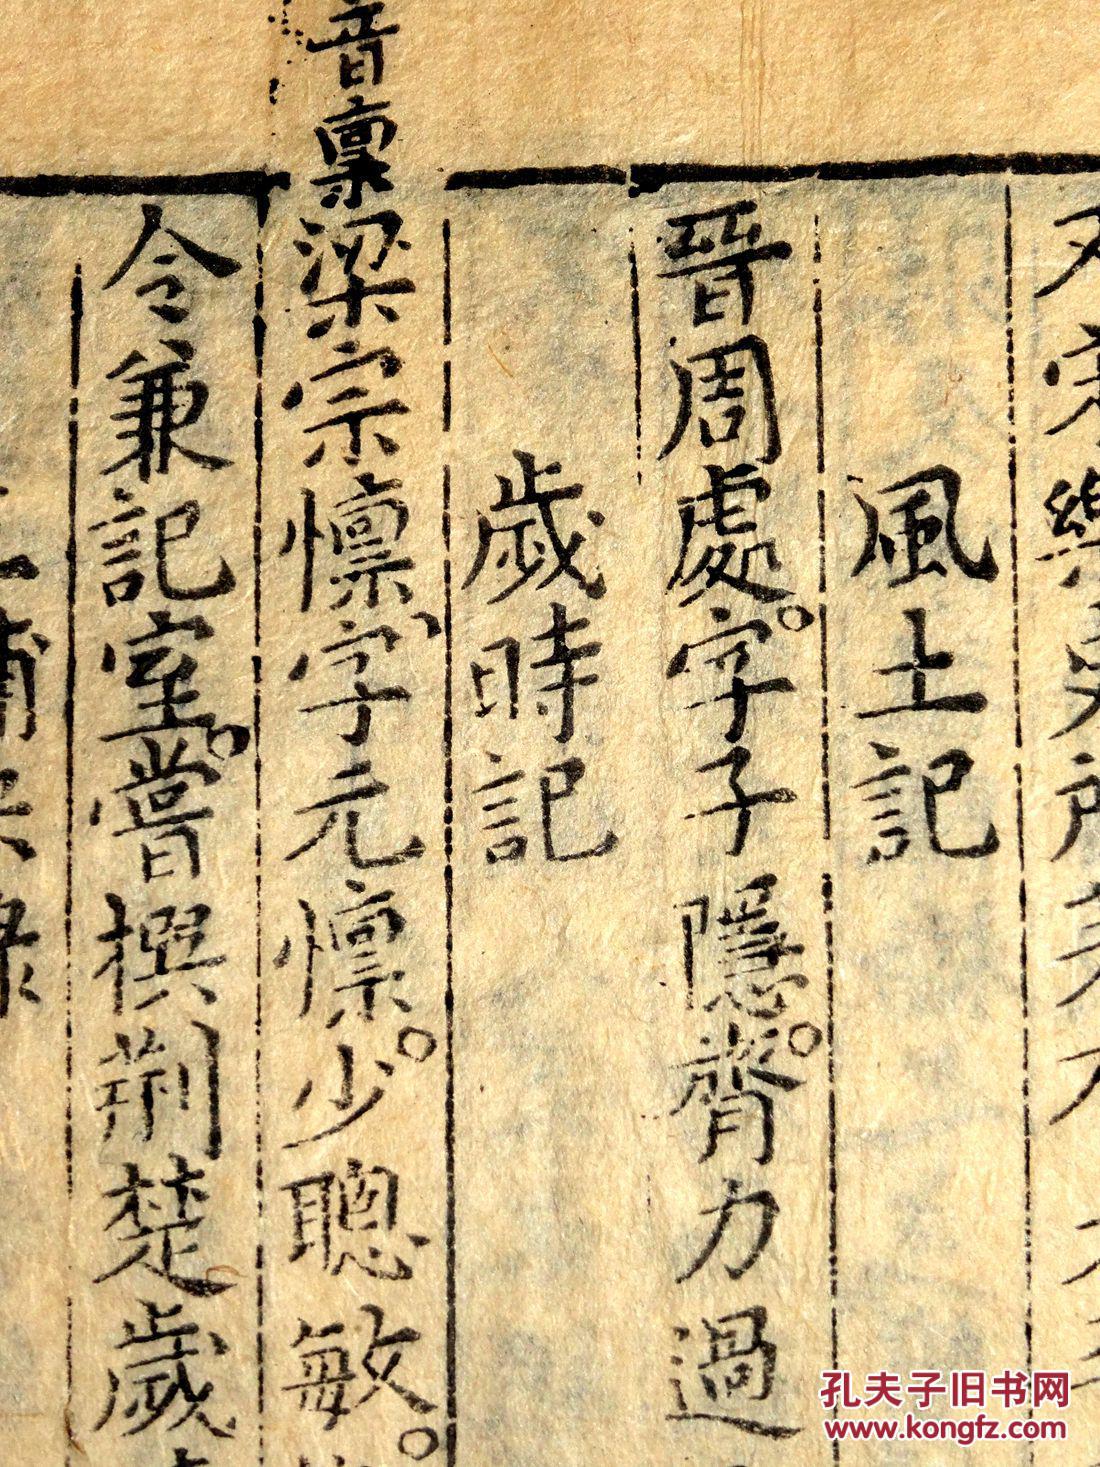 風土記
晉周處字子隱膂力過
歲時記
音禀
梁宗懍字元懍少聰敏
令兼記室嘗撰荆楚歲
孔夫子旧书网
www.kongfz.com